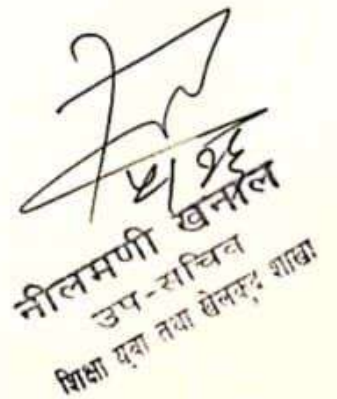 ५/२६
नीलमणी खनाल
उप-सचिव
शिक्षा युवा तथा खेलकुद शाखा